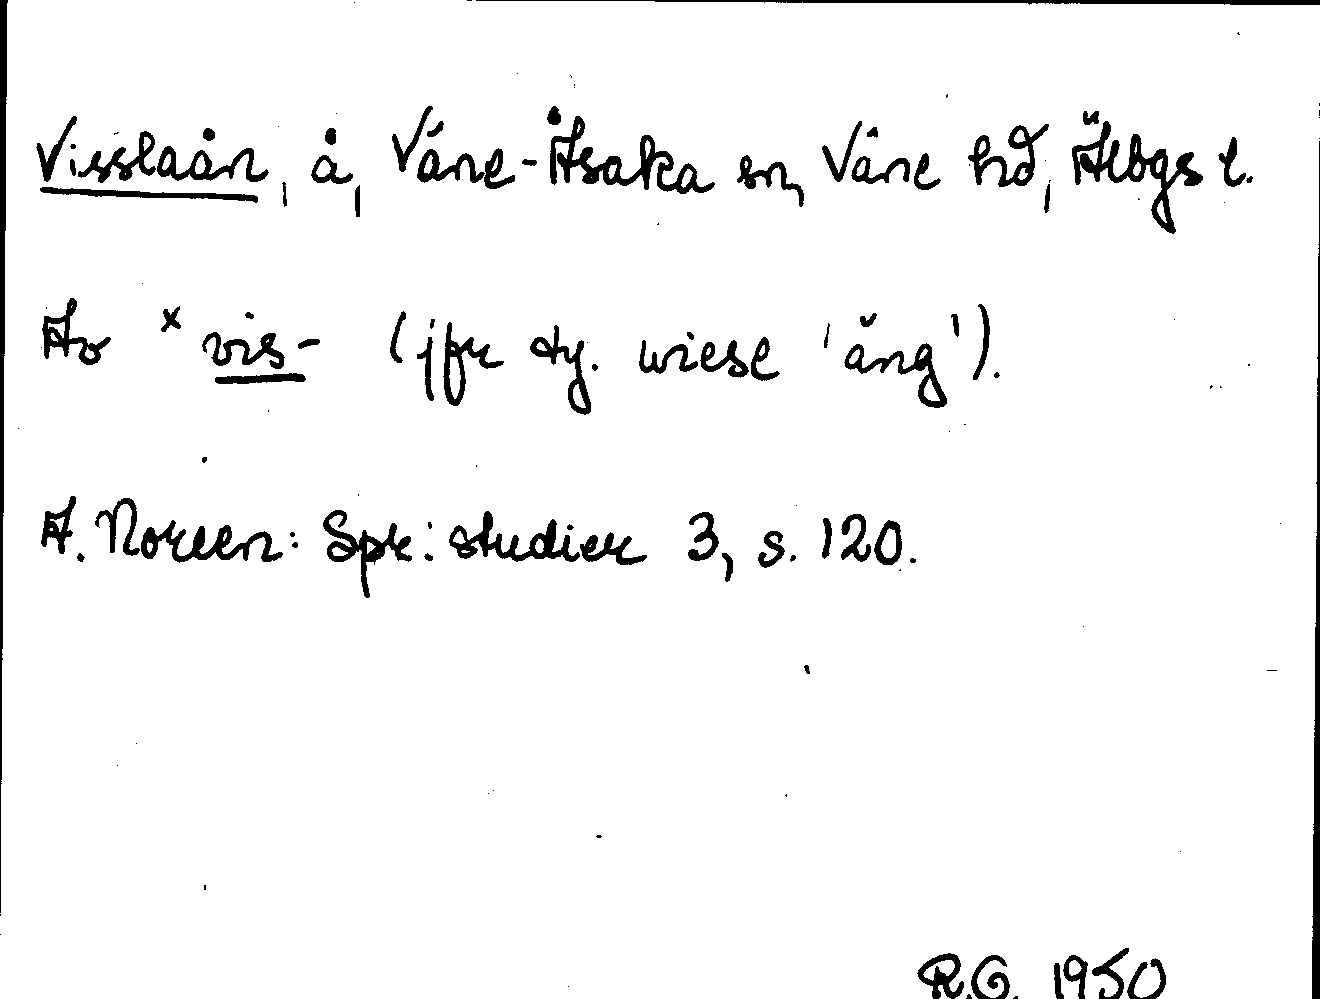 Visslaån, å, Väne-Åsaka sn, Väne hd, Älvbgs l.
Av *vis- (jfr ty. wiese 'äng').
A. Noreen: Spr: studier 3, s. 120.
R.G. 1950